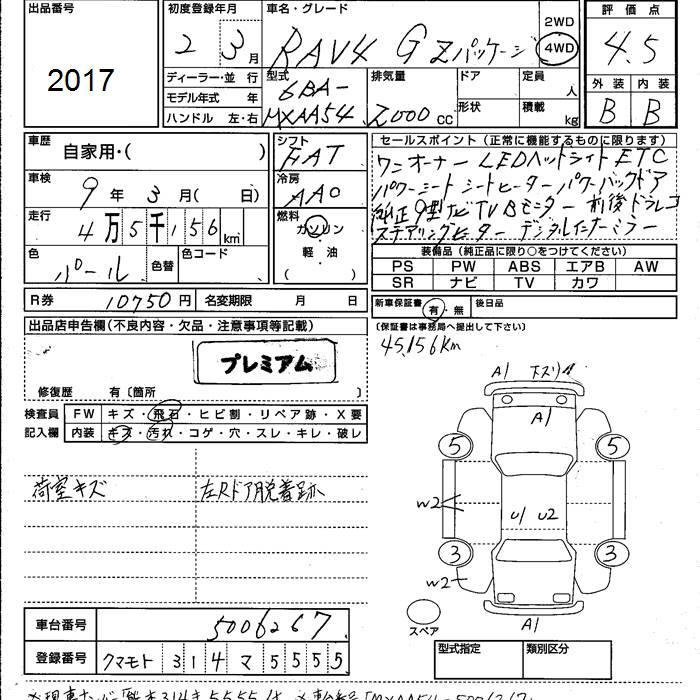 出品番号
2017
初度登録年月
2 3月
車名・グレード
RAV4 G Zパッケージ
2WD
4WD
評価点
4.5
外装 内装
B B
ディーラー・並行
モデル年式 年
ハンドル 左・右
型式
6BA-
MXAA54
排気量
2000 cc
ドア
形状
定員 人
積載 kg
車歴
自家用・( )
車検
9年 3月( 日)
走行
4万5千156km
色
パール
色替
色コード
シフト
FAT
冷房
AAC
燃料
ガソリン
・
軽・油
( )
セールスポイント(正常に機能するものに限ります)
ワンオーナー LEDヘッドライト ETC
パワーシート シートヒーター パワーバックドア
純正9型ナビTV Bモニター 前後ドラレコ
ステアリングヒーター デジタルインナーミラー
装備品(純正品に限り○をつけてください)
PS PW ABS エアB AW
SR ナビ TV カワ
R券 10750円 名変期限 月 日
新車保証書 有・無 後日品
(保証書は事務局へ提出して下さい)
45,156Km
出品店申告欄(不良内容・欠品・注意事項等記載)
プレミアム
修復歴 有〔箇所 〕
検査員
記入欄
FW キズ・飛石・ヒビ割・リペア跡・X要
内装 キズ・汚れ・コゲ・穴・スレ・キレ・破レ
荷室キズ
左Rドア脱着跡
A1 下スリ
A1
5 5
W2
U1 U2
3 3
W2
スペア
A1
車台番号 5006267
登録番号 クマモト 314 マ 5555
型式指定 類別区分